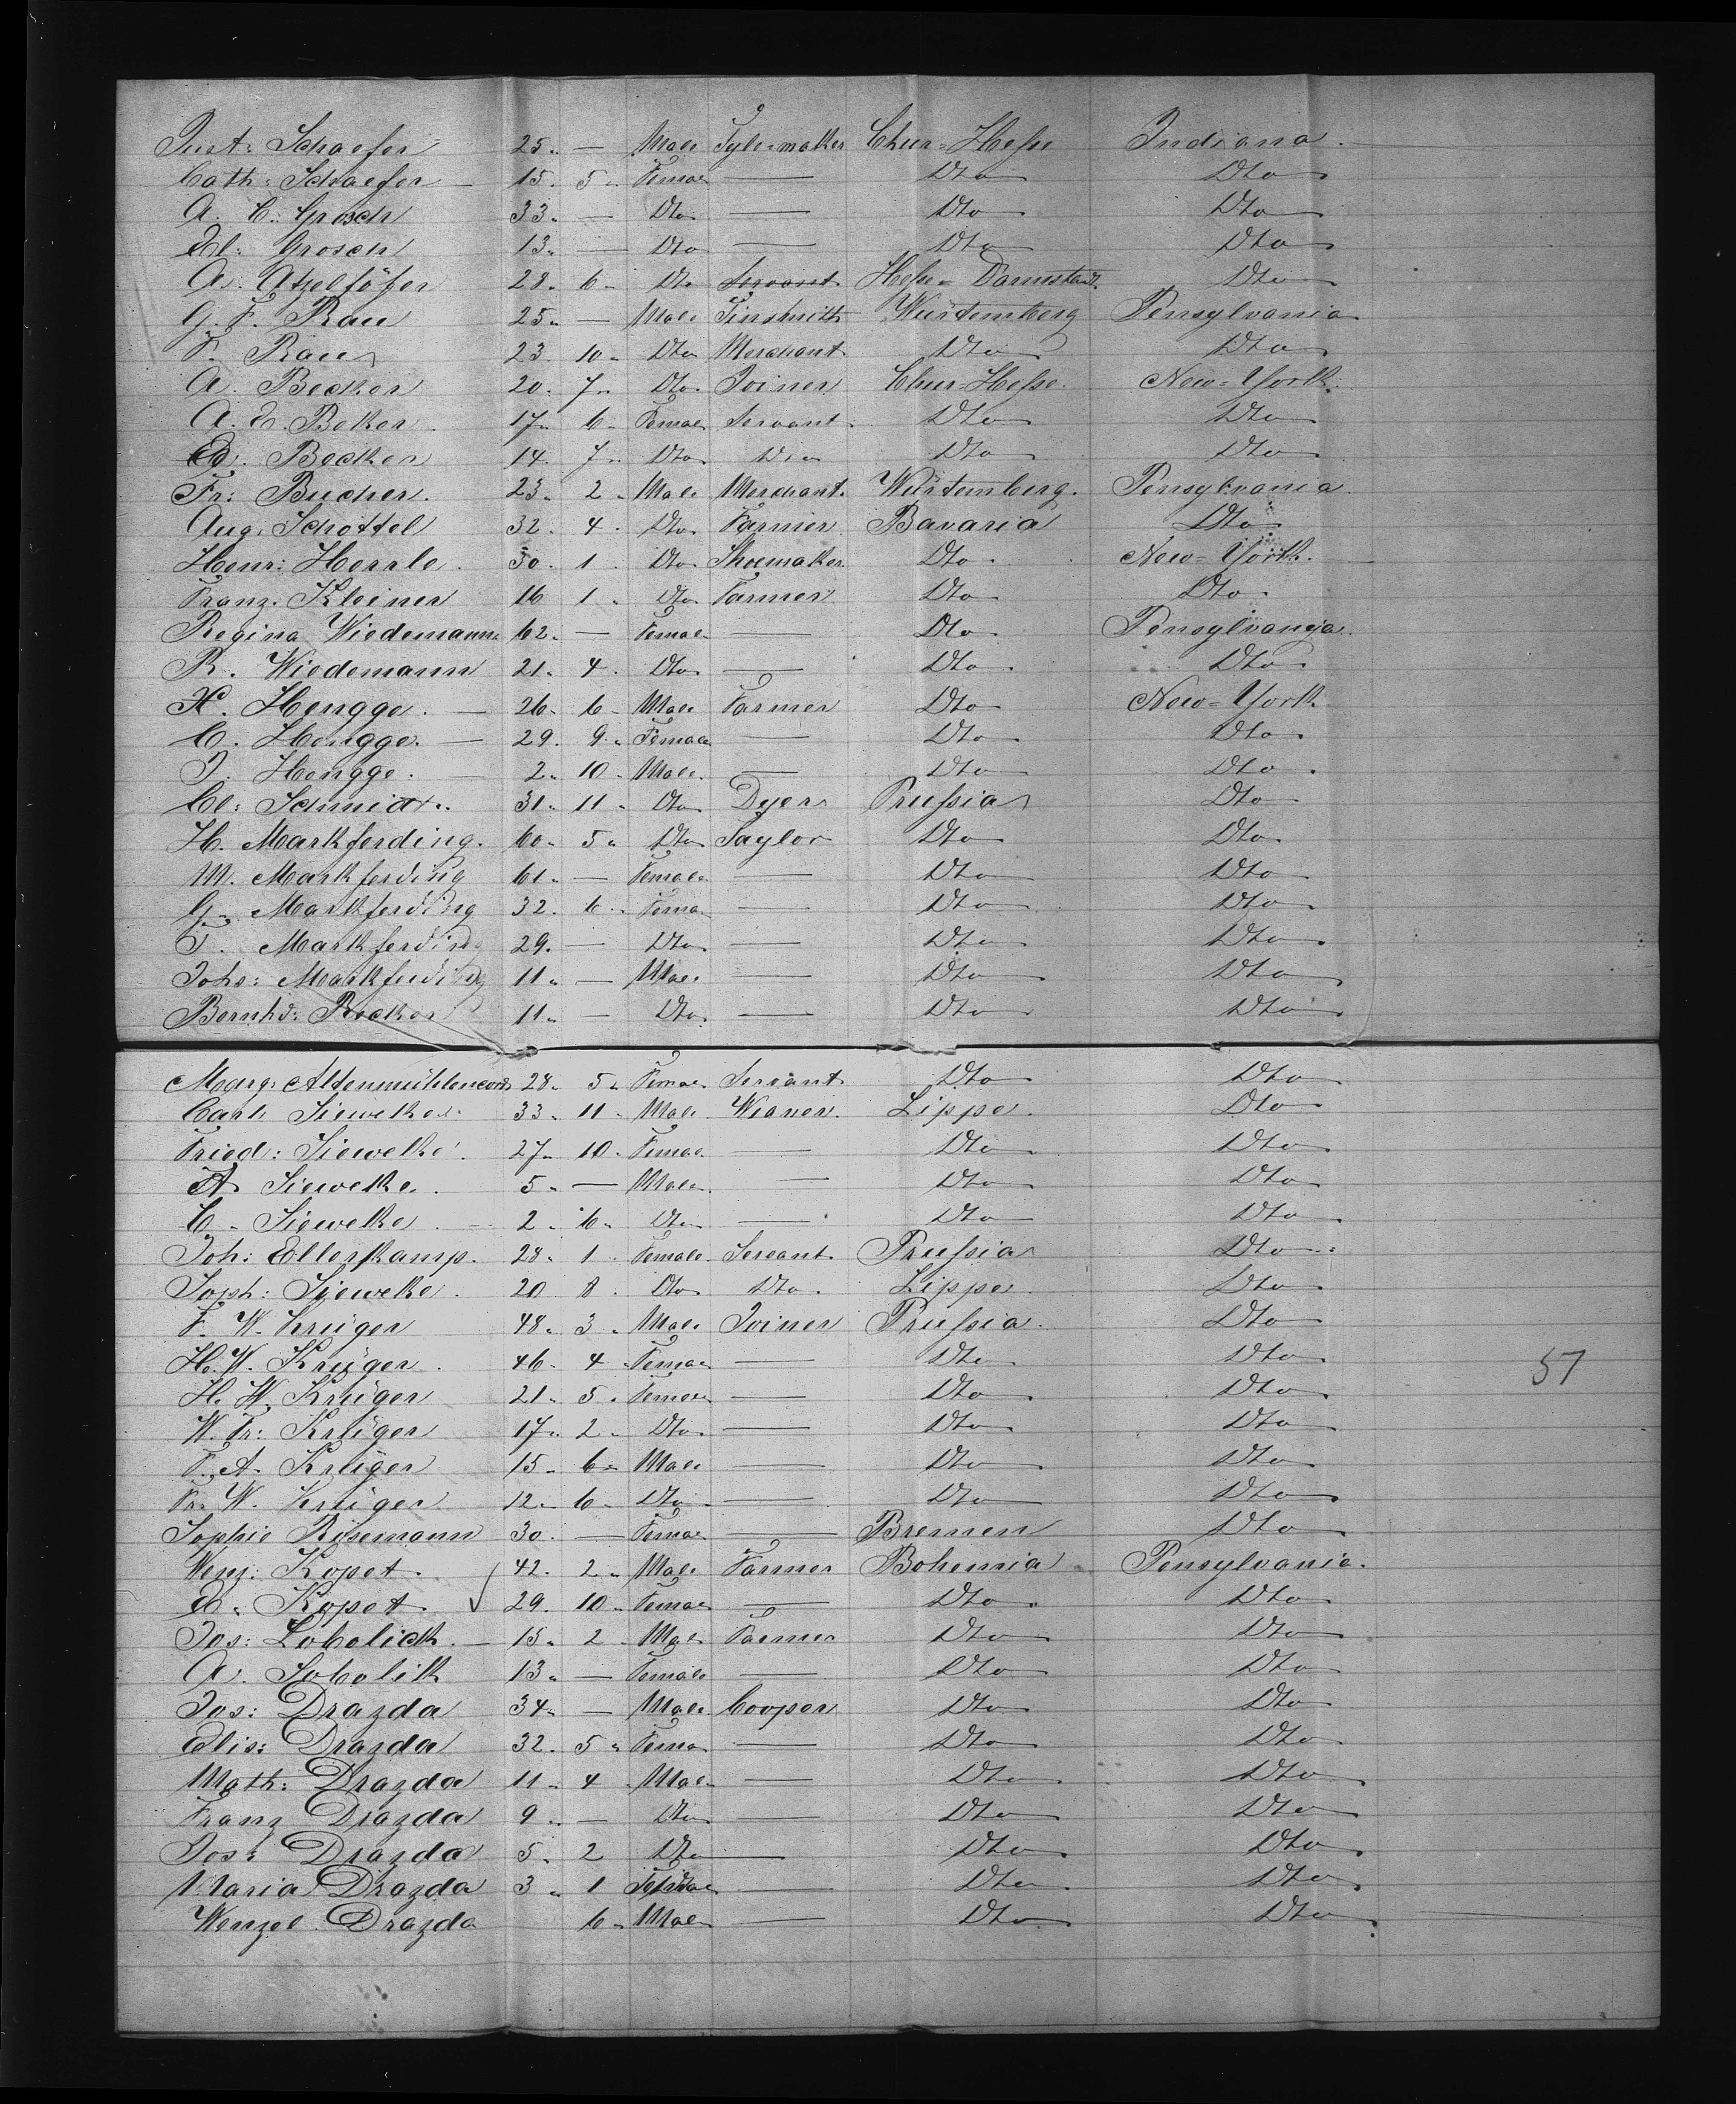 Just: Schaefer 25. — Male Tylermaker Chur-Hesse Indiana.
Cath: Schaefer — 15. 5. Femae — Dto Dto
A. C. Grosch 33. — Dto — Dto Dto
El: Grosch 13. — Dto — Dto Dto
A. Atzelföfer 28. 6. Dto Servant Hesse-Darmstadt. Dto
G. F. Rau 25. — Male Tinsmith Würtemberg Pensylvania
F. Rau 23. 10. Dto Merchant. Dto Dto
A. Becker 20. 7. Dto Joiner Chur-Hesse. New-York.
A. E. Beker. 17. 6. Femae Servant. Dto Dto
Ed. Becker 14. 7. Dto Dto Dto Dto
Fr: Bucher. 23. 2. Male Merchant. Würtemberg. Pensylvania.
Aug. Schottel 32. 4. Dto Farmer Bavaria Dto
Henr: Herrle. 30. 1. Dto Shoemaker. Dto. New-York.
Franz. Kleiner 16 1. Dto Farmer Dto Dto.
Regina Wiedemann. 62. — Femal — Dto Pensylvania.
R. Wiedemann 21. 4. Dto — Dto Dto
X. Hengge. — 26. 6. Male Farmer Dto New-York
C. Hengge. — 29. 9. Femae — Dto Dto
J. Hengge. — 2. 10. Male. — Dto Dto.
Cl: Schmidt. 31. 11. Dto Dyer Prussia Dto
H. Markferding. 60. 5. Dto Taylor Dto Dto.
M. Markferding 61. — Femae — Dto Dto
G. Markferding 32. 6. Fema — Dto Dto
F. Markferding 29. — Dto — Dto Dto
Johs: Markferding 11. — Male — Dto Dto
Bernhd: Becker 11. — Dto — Dto Dto
Marg: Altenmühlencord 28. 5. Femae Servant Dto Dto
Carl Siewelke. 33. 11. Male Weaver. Lippe. Dto
Fried: Siewelke. 27. 10. Femae — Dto Dto
A. Siewelke. 5. — Male. — Dto Dto
C. Siewelke. 2. 6. Dto — Dto Dto
Joh: Ellerkamp. 28. 1. Female Servant. Prussia Dto
Soph: Sieweke. 20 8. Dto Dto. Lippe Dto
F. W. Krüger 48. 3. Male Joiner Prussia. Dto
H. W. Krüger. 46. 4. Femae — Dto Dto
H. W. Krüger 21. 5. Femae — Dto Dto 57
W. Fr: Krüger 17. 2. Dto. — Dto Dto
F. A. Krüger 15. 6. Male — Dto Dto
Fr. W. Krüger. 12. 6. Dto — Dto Dto
Sophie Risemann 30. — Femae — Bremen Dto
Wenz: Kopet. 42. 2. Male Farmer Bohemia Pensylvania.
E. Kopet. 29. 10. Femae — Dto. Dto
Jos: Lobolick. — 15. 2. Male Farmer Dto Dto
A. Sobolik 13. — Female — Dto Dto
Jos: Drazda 34. — Male Cooper Dto Dto
Elis: Drazda 32. 5. Fema — Dto Dto
Math: Drazda 11. 4. Male — Dto Dto
Franz Drazda 9. — Dto — Dto Dto
Jos: Drazda 5. 2 Dto — Dto Dto
Maria Drazda 3. 1 Femae — Dto Dto
Wenzel. Drazda 6. Male — Dto Dto